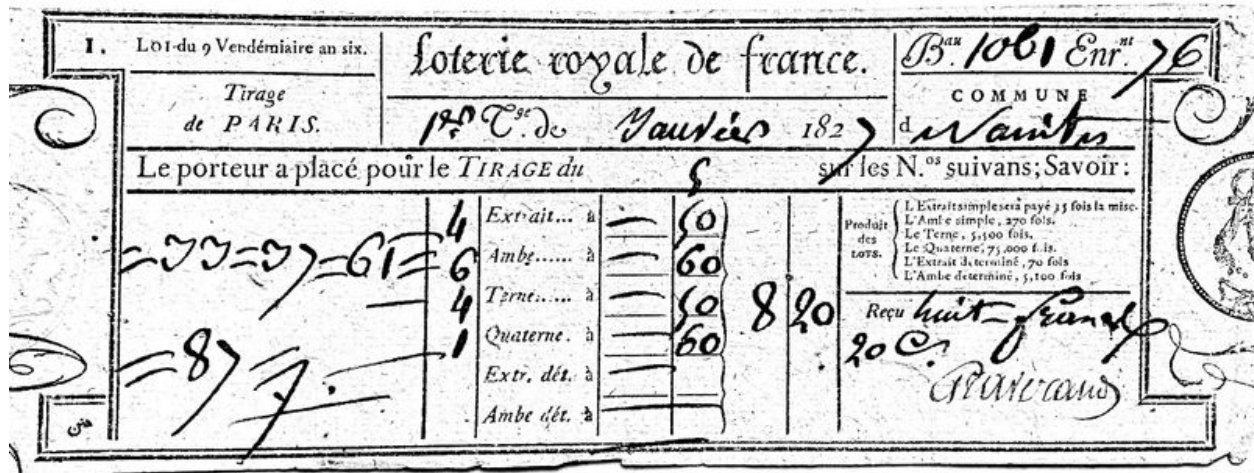 I. LOI du 9 Vendémiaire an six.
Tirage
de PARIS.
Loterie royale de france.
1er T.ge de Janvier 1827
Bau 1061 Enr.nt 76
COMMUNE
d Nantes
Le porteur a placé pour le TIRAGE du 5 sur les N.os suivans; Savoir:
=33=37=61=
=87=
4 Extrait... à — 50
6 Ambe...... à — 60
4 Terne...... à — 50
1 Quaterne. à — 60
Extr. dét. à —
Ambe dét. à —
8 20
Produit
des
LOTS.
L'Extrait simple sera payé 15 fois la mise.
L'Ambe simple, 270 fois.
Le Terne, 5,500 fois.
Le Quaterne, 75,000 fois.
L'Extrait déterminé, 70 fois
L'Ambe déterminé, 5,100 fois
Reçu huit francs
20 C.